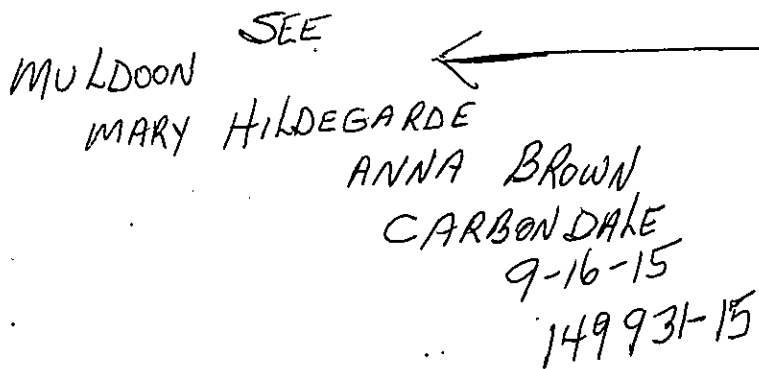 SEE
MULDOON
MARY HILDEGARDE
ANNA BROWN
CARBONDALE
9-16-15
149931-15